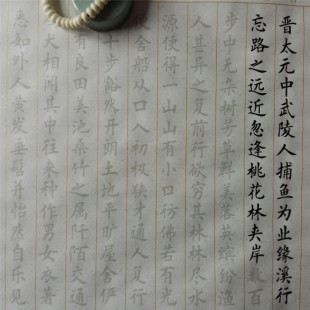 晋太元中武陵人捕鱼为业缘溪行
忘路之远近忽逢桃花林夹岸数百
步中无杂树芳草鲜美落英缤纷渔
人甚异之复前行欲穷其林林尽水
源便得一山山有小口彷佛若有光
舍船从口入初极狭才通人复行
十步豁然开朗土地平旷屋舍俨
有良田美池桑竹之属阡陌交通
犬相闻其中往来种作男女衣著
悉如外人黄发垂髫并怡然自乐见